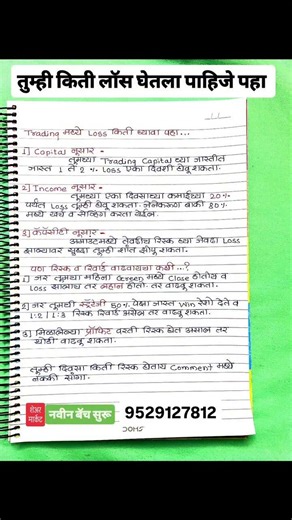 तुम्ही किती लॉस घेतला पाहिजे पहा
Trading मध्ये Loss किती घ्यावा पहा...
1] Capital नुसार -
तुमच्या Trading Capital च्या जास्तीत
जास्त 1 ते 2 % Loss एका दिवशी घेवू शकता.
2] Income नुसार -
तुमच्या एका दिवसाच्या कमाईच्या 20%
पर्यंत Loss तुम्ही घेवू शकता. जेणेकरून बाकी 80%
मध्ये खर्च व सेव्हिंग करता येईल.
3] कॅपॅसिटी नुसार -
अमाउंटमध्ये तेवढीच रिस्क घ्या जेवढा Loss
झाल्यावर सुद्धा तुम्ही शांत झोपू शकता.
पण रिस्क व रिवॉर्ड वाढवायचा कधी...?
1] जर तुमचा महिना Green मध्ये Close होतोय व
Loss झाला तर लहान होतो. तर वाढवू शकता.
2] जर तुमची स्ट्रॅटेजी 50% पेक्षा जास्त Win रेशो देते व
1:2 / 1:3 रिस्क रिवॉर्ड असेल तर वाढवू शकता.
3] मिळालेल्या प्रॉफिट वरती रिस्क घेत असाल तर
थोडी वाढवू शकता.
तुम्ही दिवसा किती रिस्क घेताय Comment मध्ये
नक्की सांगा.
शेअर
मार्केट
नवीन बॅच सुरू
9529127812